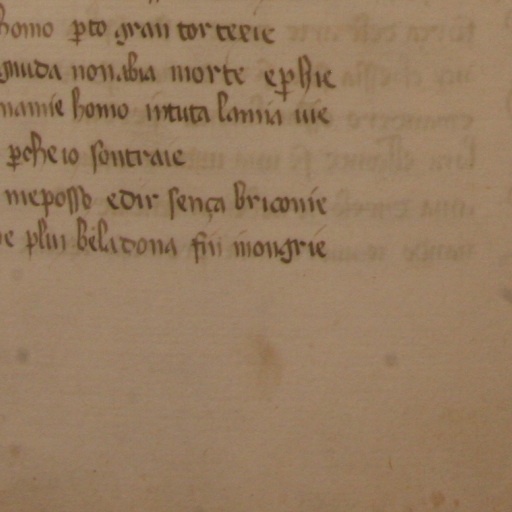 homo ꝑto gran torterie
muda non abia morte eꝑhie
namie homo intuta lamia uie
ꝑche io sontraie
meposso edir sença briconie
ꝑlui bela dona fui mongrie